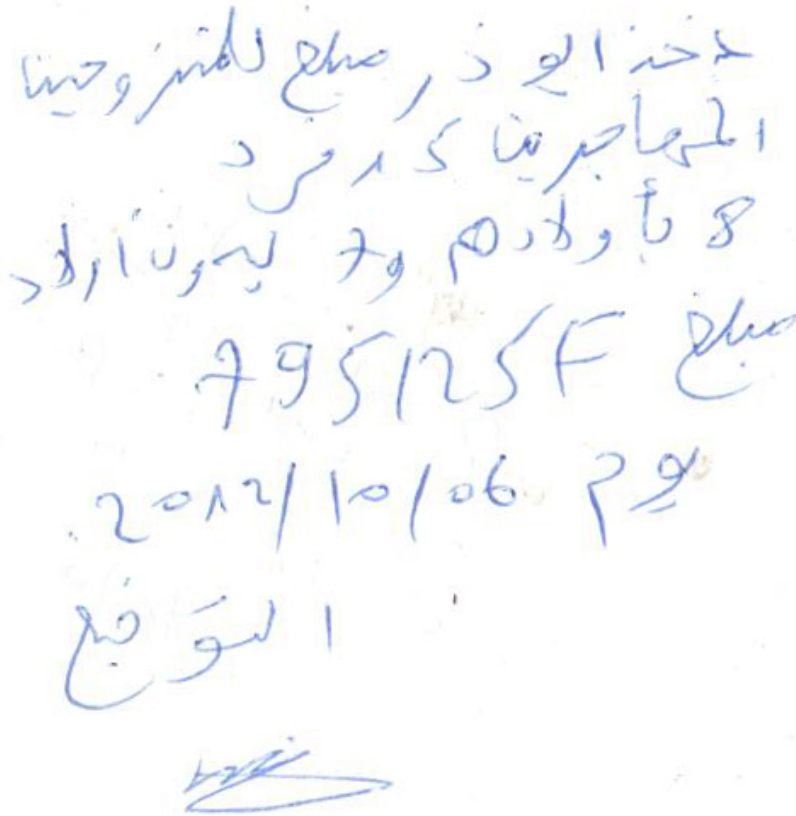 أخذ ابو ذر مبلغ للمتزوجين
المهاجرين 15 فرد
8 بأولادهم و7 بدون اولاد
مبلغ 795125F
يوم 2012/10/06
التوقيع